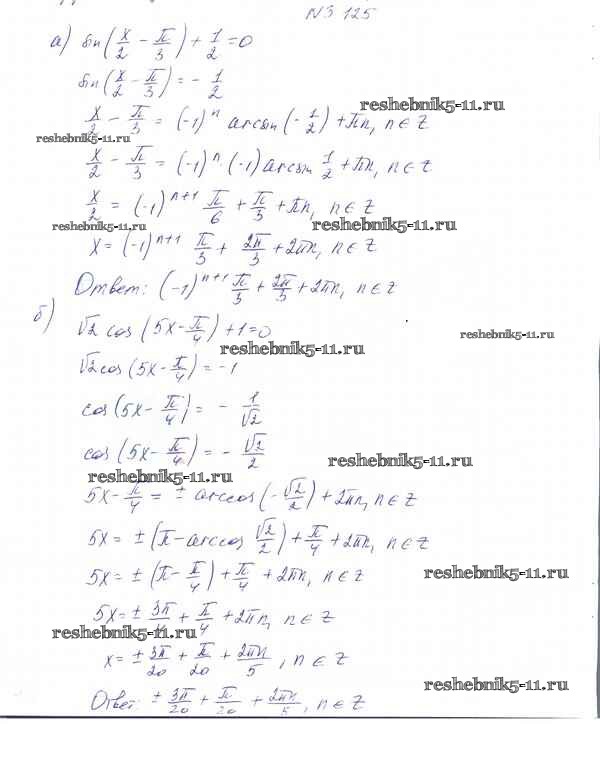 №3 125
а) sin(x/2 - π/3) + 1/2 = 0
sin(x/2 - π/3) = - 1/2
reshebnik5-11.ru
x/2 - π/3 = (-1)^n arcsin(- 1/2) + πn, n ∈ Z
reshebnik5-11.ru
x/2 - π/3 = (-1)^n · (-1) arcsin 1/2 + πn, n ∈ Z
x/2 = (-1)^(n+1) π/6 + π/3 + πn, n ∈ Z
reshebnik5-11.ru reshebnik5-11.ru
x = (-1)^(n+1) π/3 + 2π/3 + 2πn, n ∈ Z
Ответ: (-1)^(n+1) π/3 + 2π/3 + 2πn, n ∈ Z
б) √2 cos (5x - π/4) + 1 = 0
reshebnik5-11.ru
reshebnik5-11.ru
√2 cos (5x - π/4) = -1
cos (5x - π/4) = - 1/√2
cos (5x - π/4) = - √2/2
reshebnik5-11.ru
reshebnik5-11.ru
5x - π/4 = ± arccos (- √2/2) + 2πn, n ∈ Z
5x = ± (π - arccos √2/2) + π/4 + 2πn, n ∈ Z
5x = ± (π - π/4) + π/4 + 2πn, n ∈ Z
reshebnik5-11.ru
5x = ± 3π/4 + π/4 + 2πn, n ∈ Z
reshebnik5-11.ru
x = ± 3π/20 + π/20 + 2πn/5, n ∈ Z
reshebnik5-11.ru
Ответ: ± 3π/20 + π/20 + 2πn/5, n ∈ Z